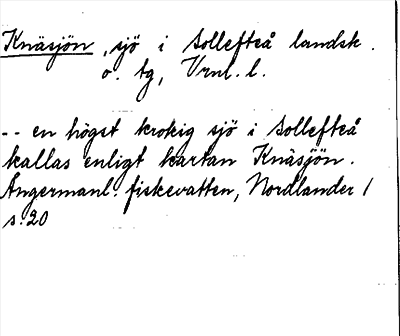 Knäsjön, sjö i Sollefteå landsk.
o. tg, Vrnl. l.
-- en högst krokig sjö i Sollefteå
kallas enligt kartan Knäsjön.
Ångermanl. fiskevatten, Nordlander 1
s. 20